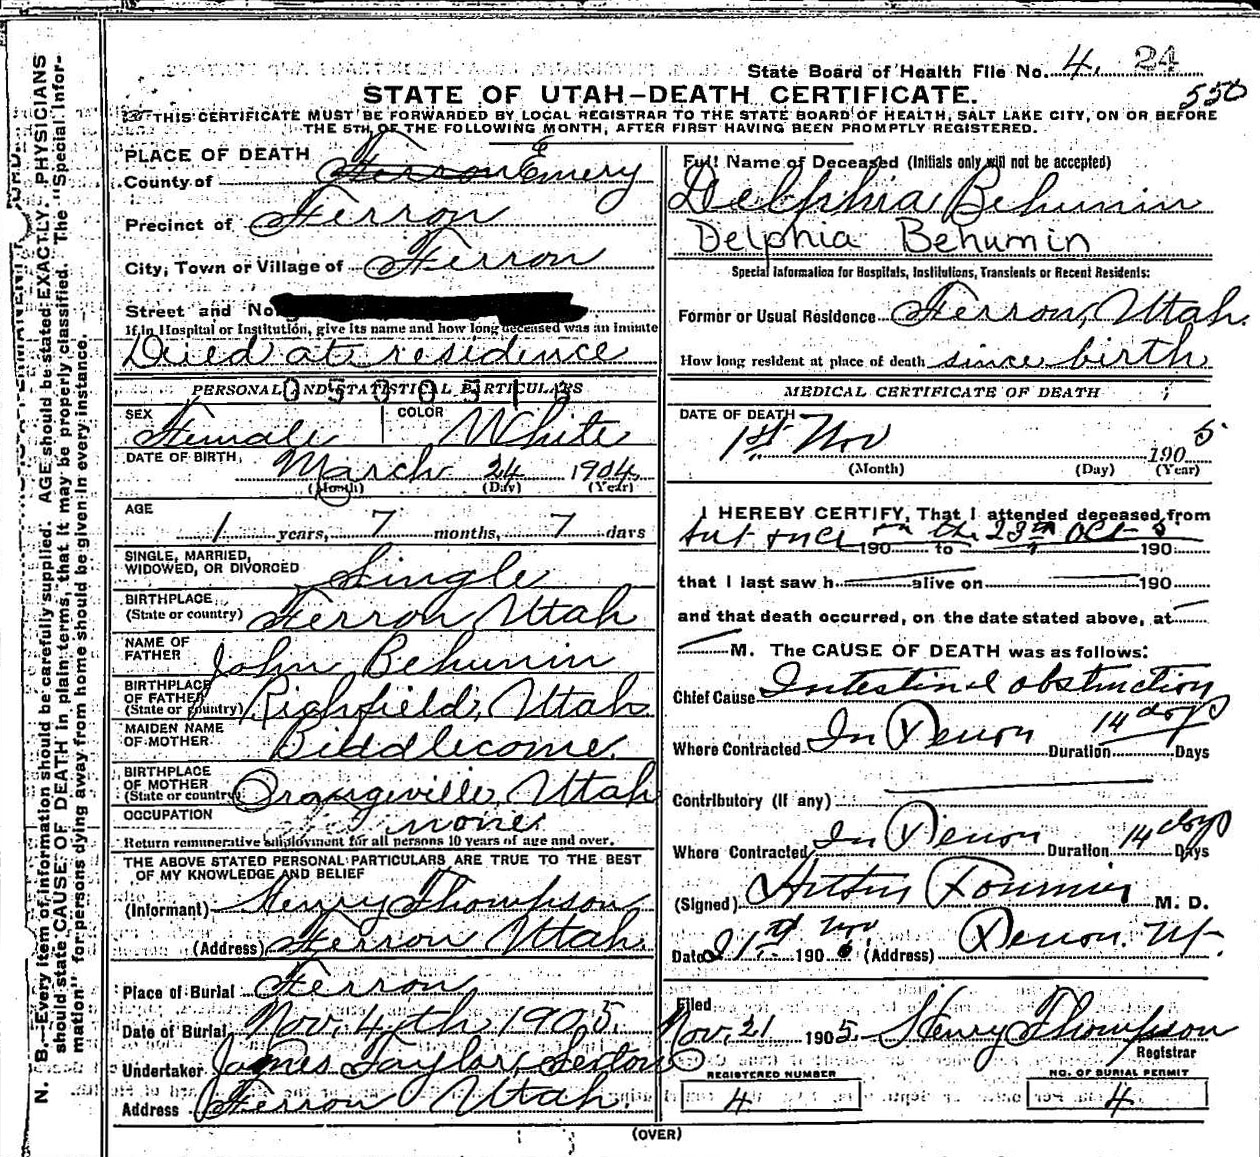 State Board of Health File No. 4. 24
550
STATE OF UTAH—DEATH CERTIFICATE.
THIS CERTIFICATE MUST BE FORWARDED BY LOCAL REGISTRAR TO THE STATE BOARD OF HEALTH, SALT LAKE CITY, ON OR BEFORE
THE 5TH OF THE FOLLOWING MONTH, AFTER FIRST HAVING BEEN PROMPTLY REGISTERED.
PLACE OF DEATH
County of Ferron Emery
Precinct of Ferron
City, Town or Village of Ferron
Street and No.
If in Hospital or Institution, give its name and how long deceased was an inmate
Died at residence
PERSONAL AND STATISTICAL PARTICULARS
SEX Female COLOR White
DATE OF BIRTH, March 24 1904
(Month) (Day) (Year)
AGE
1 years, 7 months, 7 days
SINGLE, MARRIED,
WIDOWED, OR DIVORCED Single
BIRTHPLACE
(State or country) Ferron Utah
NAME OF
FATHER John Behunin
BIRTHPLACE
OF FATHER
(State or country) Richfield, Utah
MAIDEN NAME
OF MOTHER Biddlecome
BIRTHPLACE
OF MOTHER
(State or country) Orangeville, Utah
OCCUPATION none
Return remunerative employment for all persons 10 years of age and over.
THE ABOVE STATED PERSONAL PARTICULARS ARE TRUE TO THE BEST
OF MY KNOWLEDGE AND BELIEF
(Informant) Henry Thompson
(Address) Ferron Utah
Place of Burial Ferron
Date of Burial Nov. 4th 1905.
Undertaker James Taylor, Sexton
Address Ferron Utah.
Full Name of Deceased (Initials only will not be accepted)
Delphia Behunin
Delphia Behumin
Special Information for Hospitals, Institutions, Transients or Recent Residents:
Former or Usual Residence Ferron, Utah.
How long resident at place of death since birth
MEDICAL CERTIFICATE OF DEATH
DATE OF DEATH
1st Nov 190 5
(Month) (Day) (Year)
I HEREBY CERTIFY, That I attended deceased from
on the 23th Oct 5
190 to 190
that I last saw h alive on 190
and that death occurred, on the date stated above, at
M. The CAUSE OF DEATH was as follows:
Chief Cause Intestinal obstruction
Where Contracted In Ferron Duration 14 days Days
Contributory (if any)
Where Contracted In Ferron Duration 14 days Days
(Signed) M. D.
Date 21st Nov 190 (Address) Ferron. Ut
Filed
Nov. 21 1905. Henry Thompson
Registrar
REGISTERED NUMBER
4
NO. OF BURIAL PERMIT
4
(OVER)
N. B.—Every item of information should be carefully supplied. AGE should be stated EXACTLY. PHYSICIANS
should state CAUSE OF DEATH in plain terms, that it may be properly classified. The "Special Infor-
mation" for persons dying away from home should be given in every instance.